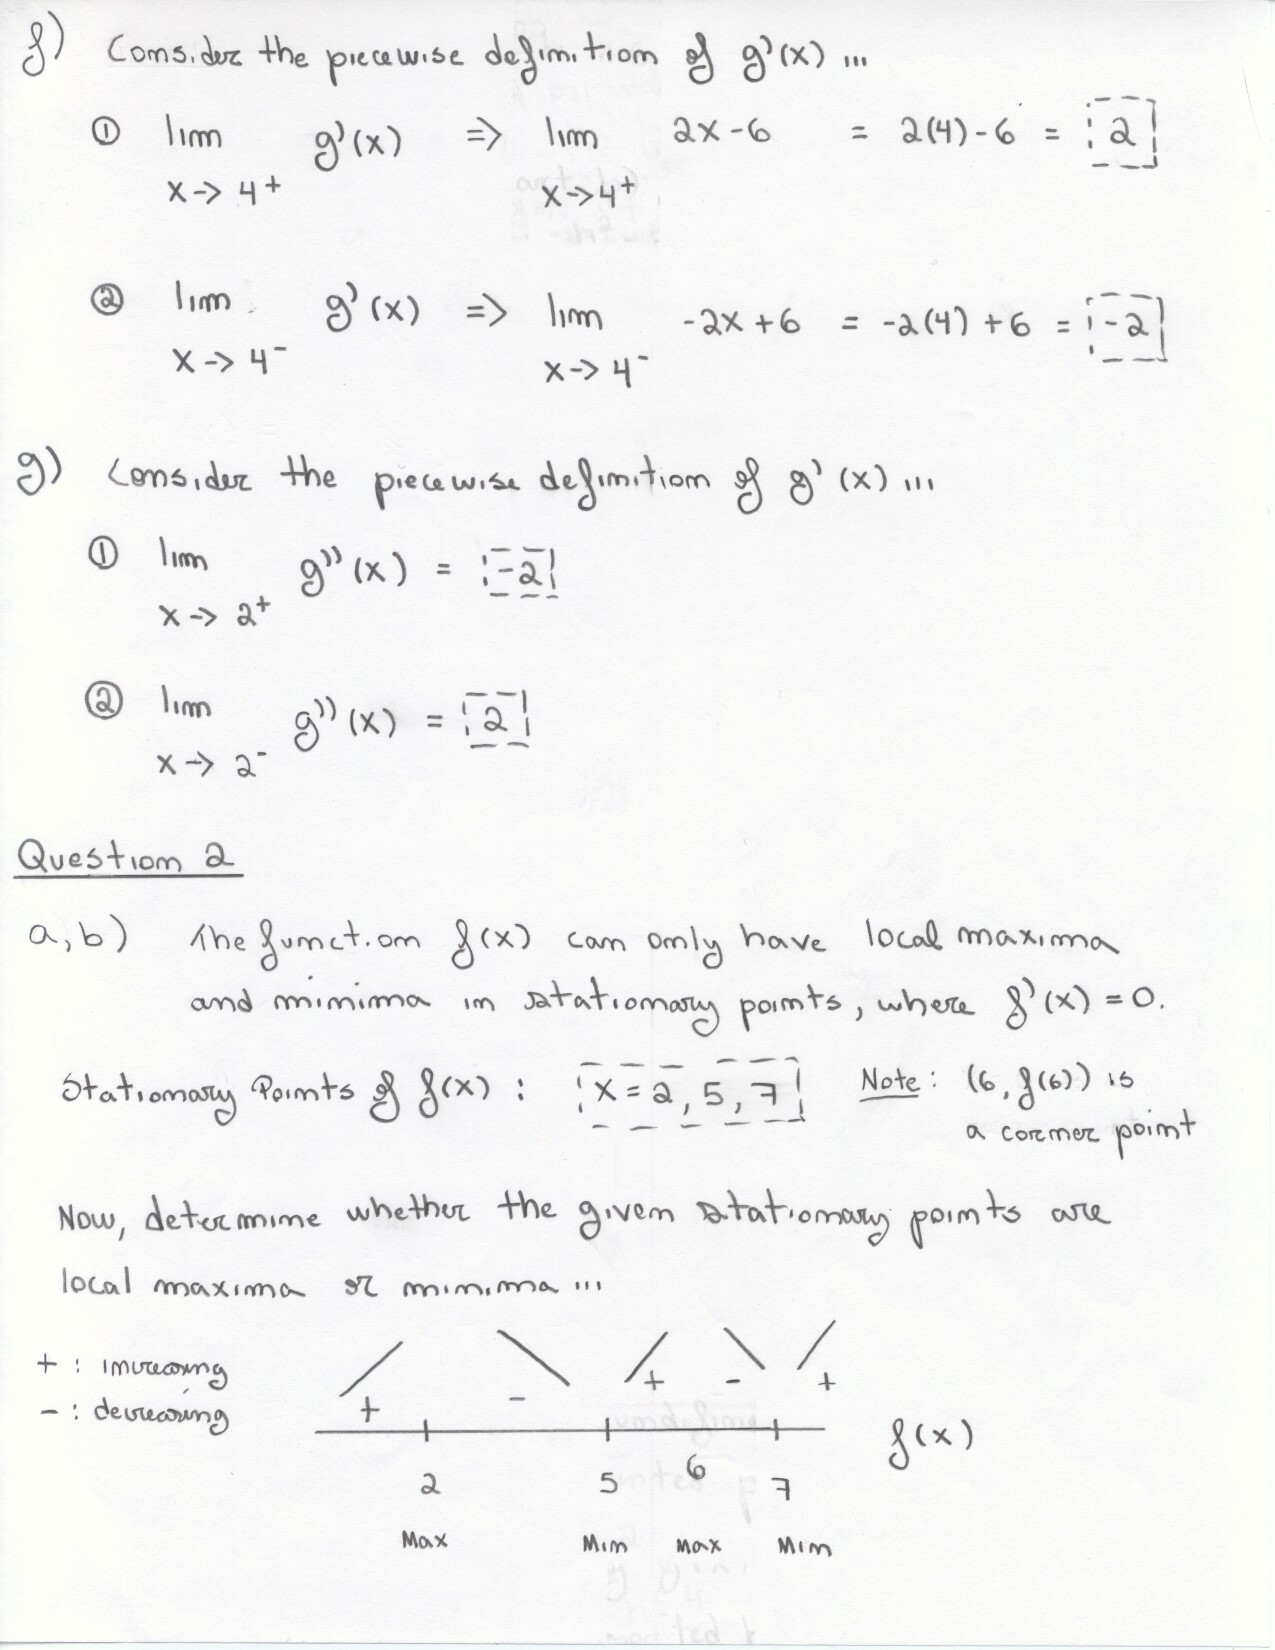 f) Consider the piecewise definition of g'(x) ...
① lim g'(x) => lim 2x-6 = 2(4)-6 = 2
x→4⁺ x→4⁺
② lim g'(x) => lim -2x+6 = -2(4)+6 = -2
x→4⁻ x→4⁻
g) Consider the piecewise definition of g'(x) ...
① lim g''(x) = -2
x→2⁺
② lim g''(x) = 2
x→2⁻
Question 2
a,b) The function f(x) can only have local maxima
and minima in stationary points, where f'(x) = 0.
Stationary Points of f(x) : x = 2, 5, 7 Note: (6, f(6)) is
a corner point
Now, determine whether the given stationary points are
local maxima or minima ...
+ : increasing
- : decreasing
+ - + - +
f(x)
2 5 6 7
Max Min Max Min